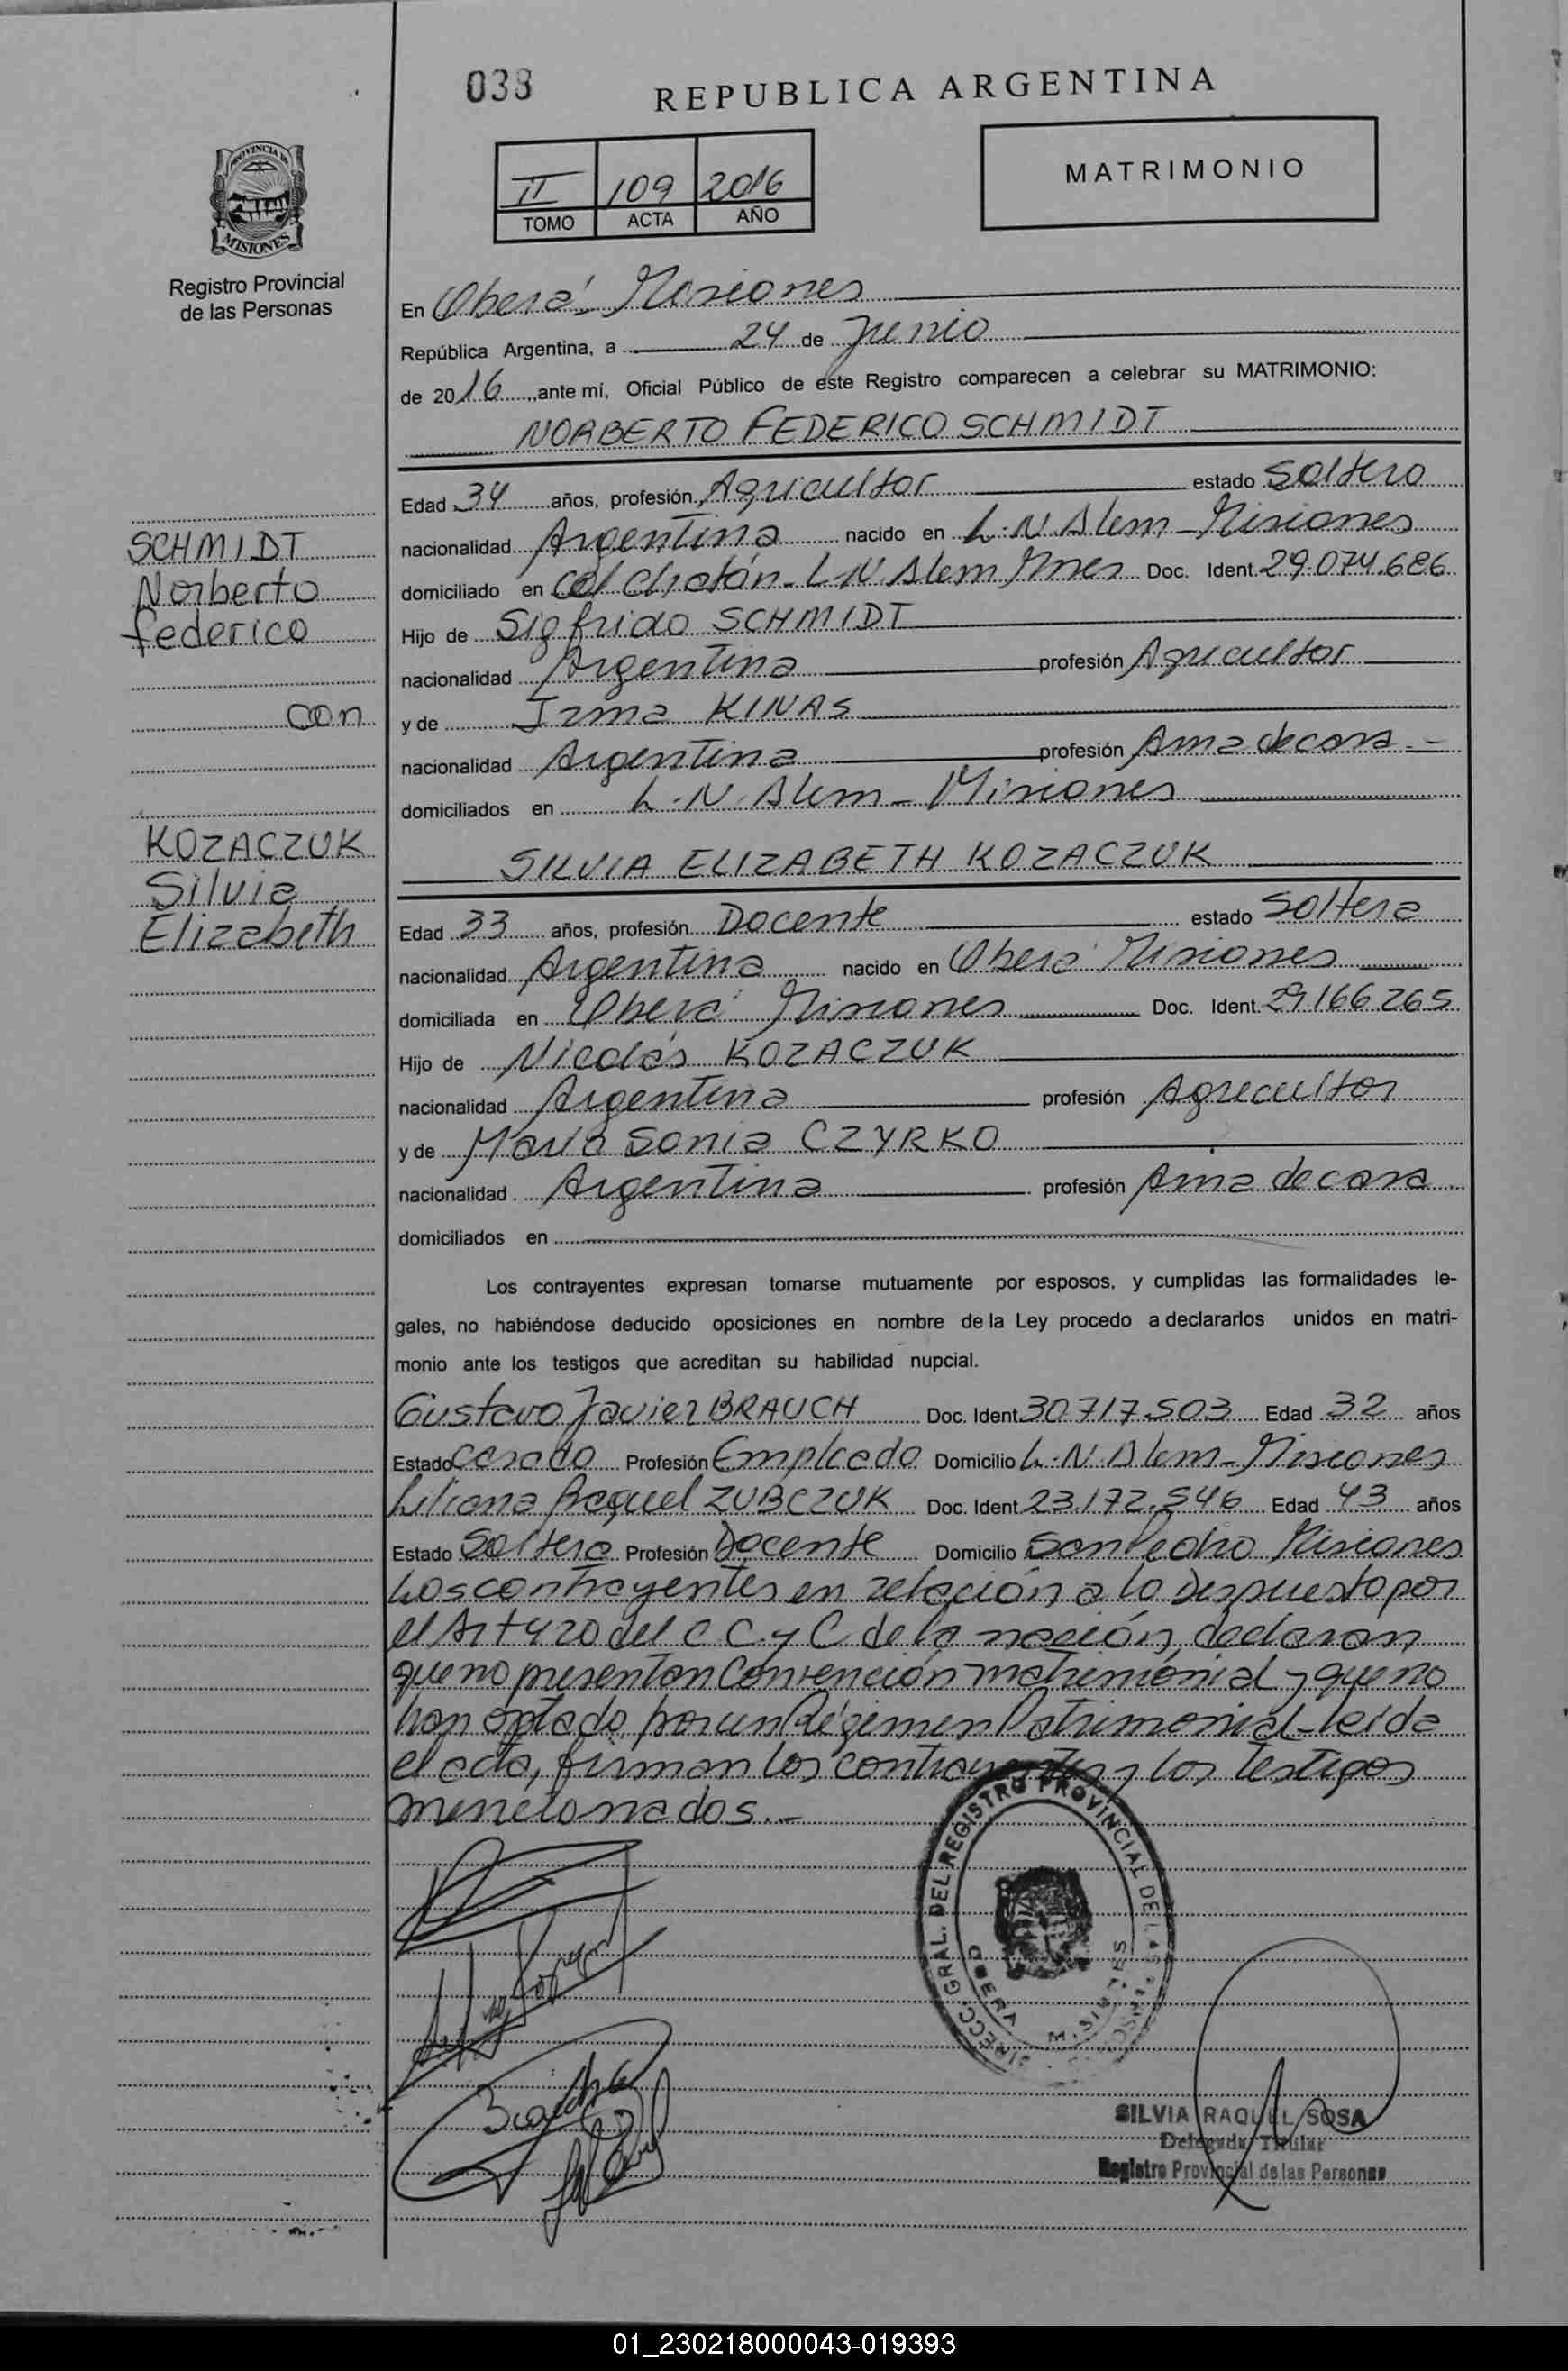 038
REPUBLICA ARGENTINA
PROVINCIA DE
MISIONES
Registro Provincial
de las Personas
II 109 2016
TOMO ACTA AÑO
MATRIMONIO
En Oberá Misiones
República Argentina, a 24 de Junio
de 2016, ante mí, Oficial Público de este Registro comparecen a celebrar su MATRIMONIO:
NORBERTO FEDERICO SCHMIDT
Edad 34 años, profesión Agricultor estado Soltero
nacionalidad Argentina nacido en L.N Alem - Misiones
domiciliado en Col Chatón - L-N Alem Mnes Doc. Ident. 29.074.686
Hijo de Sigfrido SCHMIDT
nacionalidad Argentina profesión Agricultor
y de Irma KINAS
nacionalidad Argentina profesión Ama de casa -
domiciliados en L.N. Alem - Misiones
SCHMIDT
Norberto
Federico
con
KOZACZUK
Silvia
Elizabeth
SILVIA ELIZABETH KOZACZUK
Edad 33 años, profesión Docente estado Soltera
nacionalidad Argentina nacido en Oberá Misiones
domiciliada en Oberá Misiones Doc. Ident. 29.166.265
Hijo de Nicolás KOZACZUK
nacionalidad Argentina profesión Agricultor
y de María Sonia CZYRKO
nacionalidad Argentina profesión Ama de casa
domiciliados en
Los contrayentes expresan tomarse mutuamente por esposos, y cumplidas las formalidades le-
gales, no habiéndose deducido oposiciones en nombre de la Ley procedo a declararlos unidos en matri-
monio ante los testigos que acreditan su habilidad nupcial.
Gustavo Javier BRAUCH Doc. Ident. 30.717.503 Edad 32 años
Estado Casado Profesión Empleado Domicilio L.N. Alem - Misiones
Liliana Raquel ZUBCZUK Doc. Ident. 23.172.546 Edad 43 años
Estado Soltera Profesión Docente Domicilio San Pedro Misiones
Los contrayentes en relación a lo Dispuesto por
el Art 420 del C C. y C de la nación, declaran
que no presentan Convención matrimonial y que no
han optado por un Régimen Patrimonial - leída
el acta, firman los contrayentes y los testigos
mencionados.-
DIRECC. GRAL. DEL REGISTRO PROVINCIAL DE LAS PERSONAS
OBERA MISIONES
SILVIA RAQUEL SOSA
Delegada Titular
Registro Provincial de las Personas
01_230218000043-019393